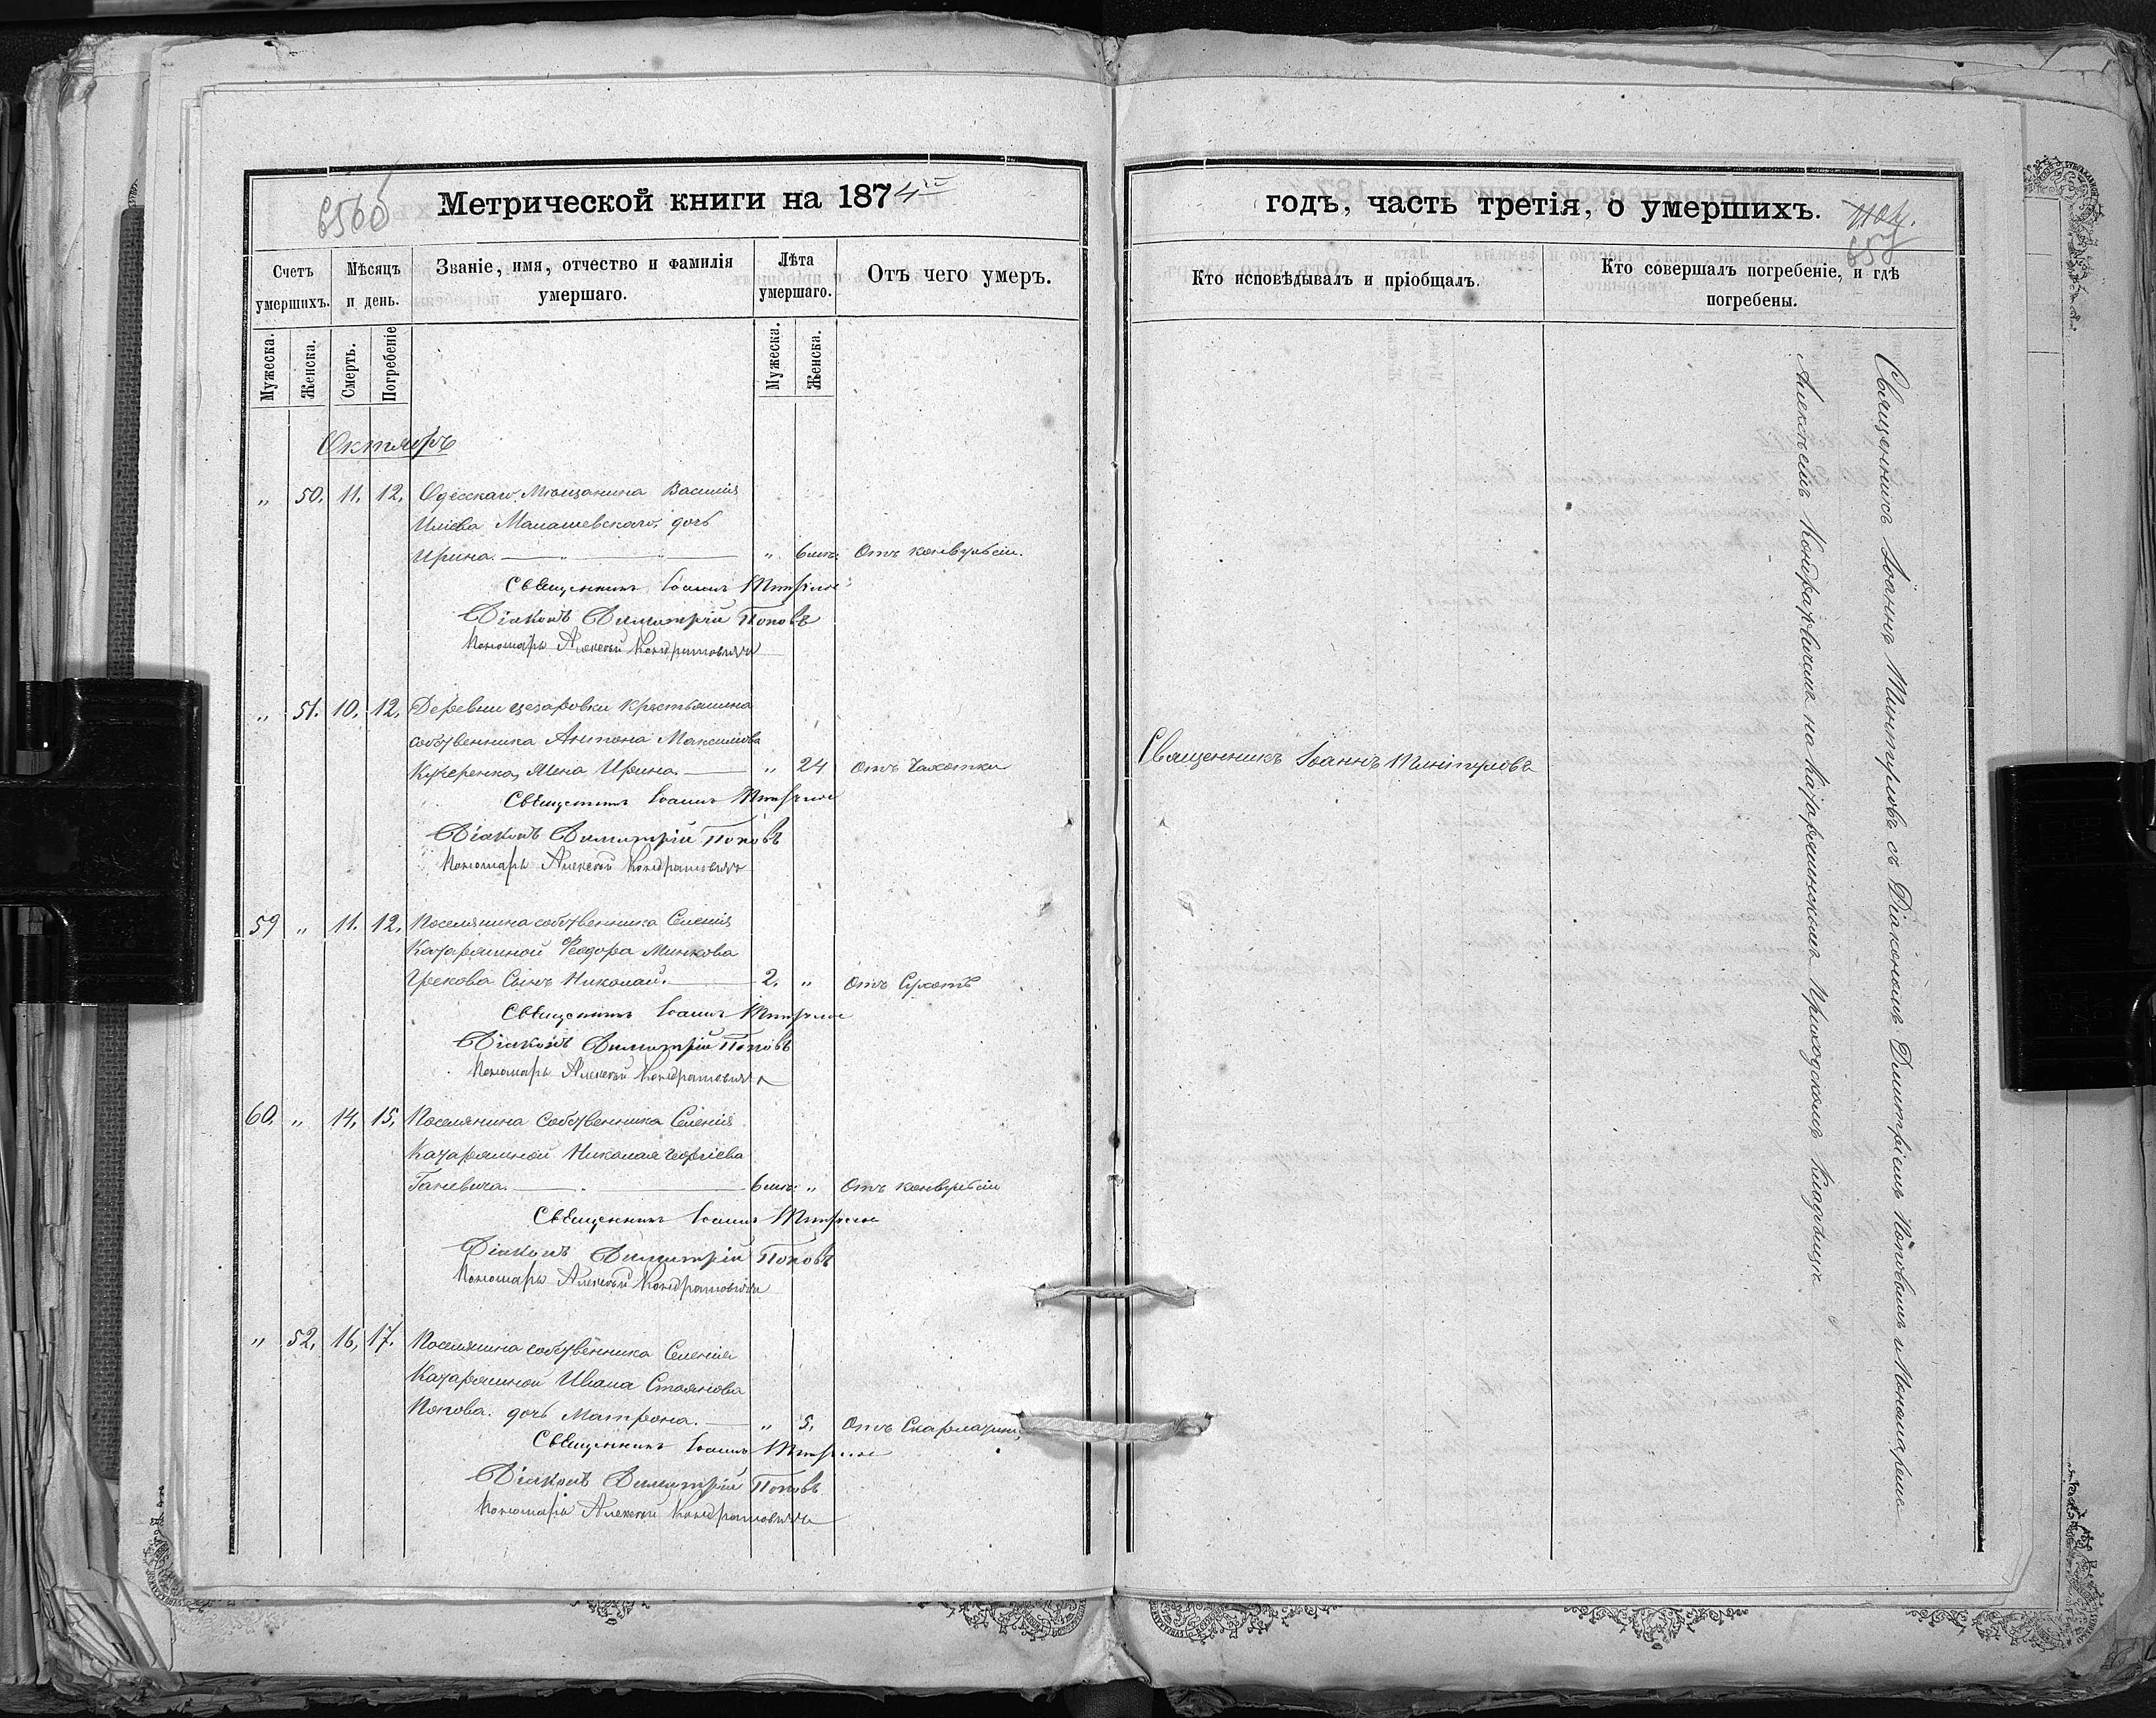 Метрической книги на 1874
Счетъ умершихъ.
Мѣсяцъ и день.
Званіе, имя, отчество и фамилія умершаго.
Лѣта умершаго.
Отъ чего умеръ.
Мужеска. Женска. Смерть. Погребеніе
Мужеска. Женска.
Октябрь
„ 50. 11. 12. Одесскаго Мѣщанина Василія
Иліева дочь
Ирина. „ 6 мѣс: Отъ конвульсіи.
Священникъ Іоаннъ
Діаконъ Димитрій Поповъ
Пономарь Алексѣй Кондратовичъ
„ 51. 10. 12. Деревни Цезаровки Крестьянина
собственника Антона Максимова
Кучеренка, Жена Ирина. „ 24 Отъ Чахотки
Священникъ Іоаннъ
Діаконъ Димитрій Поповъ
Пономарь Алексѣй Кондратовичъ
59 „ 11. 12. Поселянина собственника Селенія
Катаржиной Ѳеодора Минкова
Грекова Сынъ Николай. 2. „ Отъ Сухотъ
Священникъ Іоаннъ
Діаконъ Димитрій Поповъ
Пономарь Алексѣй Кондратовичъ
60. „ 14. 15. Поселянина Собственника Селенія
Катаржиной Николая Георгіева
Ганевича. 6 мѣс: „ Отъ конвульсіи
Священникъ Іоаннъ
Діаконъ Димитрій Поповъ
Пономарь Алексѣй Кондратовичъ
„ 52. 16. 17. Поселянина собственника Селенія
Катаржиной Ивана Стоянова
Попова. дочь Матрона. „ 5. Отъ Скарлатины
Священникъ Іоаннъ
Діаконъ Димитрій Поповъ
Пономарь Алексѣй Кондратовичъ
годъ, часть третія, о умершихъ.
Кто исповѣдывалъ и пріобщалъ.
Кто совершалъ погребеніе, и гдѣ погребены.
Священникъ Іоаннъ
Священникъ Іоаннъ съ Діакономъ Димитріемъ Поповымъ и Пономаремъ
Алексѣемъ Кондратовичемъ на Катаржинскомъ Приходскомъ Кладбищѣ.